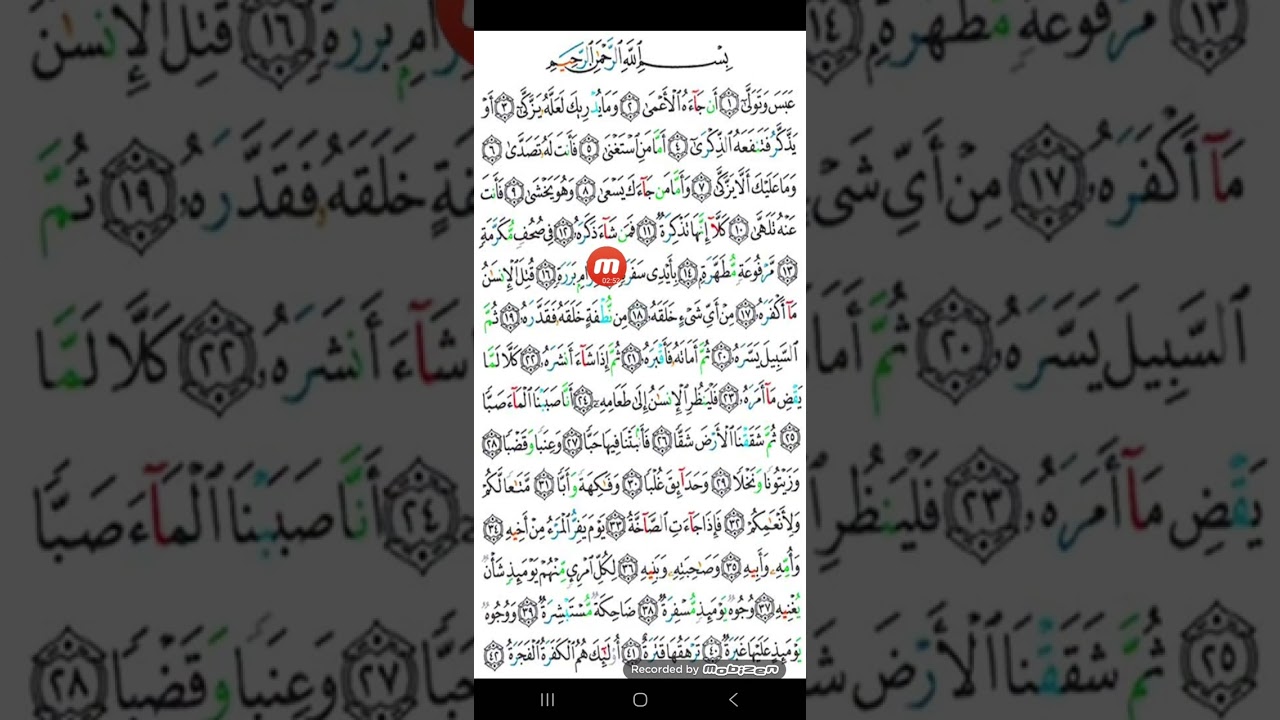 بِسْمِ ٱللَّهِ ٱلرَّحْمَٰنِ ٱلرَّحِيمِ
عَبَسَ وَتَوَلَّىٰٓ ١ أَن جَآءَهُ ٱلْأَعْمَىٰ ٢ وَمَا يُدْرِيكَ لَعَلَّهُۥ يَزَّكَّىٰٓ ٣ أَوْ
يَذَّكَّرُ فَتَنفَعَهُ ٱلذِّكْرَىٰٓ ٤ أَمَّا مَنِ ٱسْتَغْنَىٰ ٥ فَأَنتَ لَهُۥ تَصَدَّىٰ ٦
وَمَا عَلَيْكَ أَلَّا يَزَّكَّىٰ ٧ وَأَمَّا مَن جَآءَكَ يَسْعَىٰ ٨ وَهُوَ يَخْشَىٰ ٩ فَأَنتَ
عَنْهُ تَلَهَّىٰ ١٠ كَلَّآ إِنَّهَا تَذْكِرَةٌ ١١ فَمَن شَآءَ ذَكَرَهُۥ ١٢ فِى صُحُفٍ مُّكَرَّمَةٍ
١٣ مَّرْفُوعَةٍ مُّطَهَّرَةٍۭ ١٤ بِأَيْدِى بَرَرَةٍ ١٦ قُتِلَ ٱلْإِنسَٰنُ
مَآ أَكْفَرَهُۥ ١٧ مِنْ أَىِّ شَىْءٍ خَلَقَهُۥ ١٨ مِن نُّطْفَةٍ خَلَقَهُۥ فَقَدَّرَهُۥ ١٩ ثُمَّ
ٱلسَّبِيلَ يَسَّرَهُۥ ٢٠ ثُمَّ أَمَاتَهُۥ فَأَقْبَرَهُۥ ٢١ ثُمَّ إِذَا شَآءَ أَنشَرَهُۥ ٢٢ كَلَّا لَمَّا
يَقْضِ مَآ أَمَرَهُۥ ٢٣ فَلْيَنظُرِ ٱلْإِنسَٰنُ إِلَىٰ طَعَامِهِۦٓ ٢٤ أَنَّا صَبَبْنَا ٱلْمَآءَ صَبًّا
٢٥ ثُمَّ شَقَقْنَا ٱلْأَرْضَ شَقًّا ٢٦ فَأَنۢبَتْنَا فِيهَا حَبًّا ٢٧ وَعِنَبًا وَقَضْبًا ٢٨
وَزَيْتُونًا وَنَخْلًا ٢٩ وَحَدَآئِقَ غُلْبًا ٣٠ وَفَٰكِهَةً وَأَبًّا ٣١ مَّتَٰعًا لَّكُمْ
وَلِأَنْعَٰمِكُمْ ٣٢ فَإِذَا جَآءَتِ ٱلصَّآخَّةُ ٣٣ يَوْمَ يَفِرُّ ٱلْمَرْءُ مِنْ أَخِيهِ ٣٤
وَأُمِّهِۦ وَأَبِيهِ ٣٥ وَصَٰحِبَتِهِۦ وَبَنِيهِ ٣٦ لِكُلِّ ٱمْرِئٍ مِّنْهُمْ يَوْمَئِذٍ شَأْنٌ
يُغْنِيهِ ٣٧ وُجُوهٌ يَوْمَئِذٍ مُّسْفِرَةٌ ٣٨ ضَاحِكَةٌ مُّسْتَبْشِرَةٌ ٣٩ وَوُجُوهٌ
يَوْمَئِذٍ عَلَيْهَا غَبَرَةٌ ٤٠ تَرْهَقُهَا قَتَرَةٌ ٤١ أُو۟لَٰٓئِكَ هُمُ ٱلْكَفَرَةُ ٱلْفَجَرَةُ ٤٢
Recorded by Mobizen